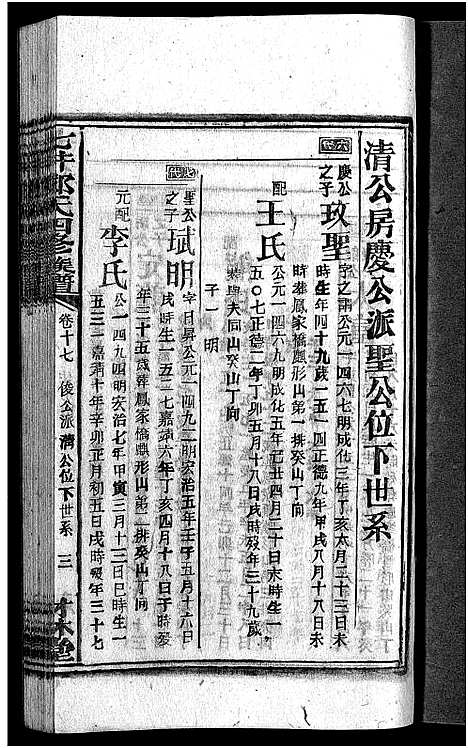 清公房慶公派聖公位下世系
六代
慶公之子 玖聖 字之 公元一四六七明成化三年丁亥六月二十三日未
時生年四十九歲一五一四正德九年甲戌八月十八日未
時葬鳳家橋 形山第一排癸山丁向
配 王氏 公元一四六九明成化五年己丑四月二十日未時生一
五〇七正德二年丁卯五月十八日戌時歿年三十九歲
葬 大同山癸山丁向
子一 明
七代
聖公之子 珷明 字日昇公元一四九二明宏治五年壬子
戌時生一五二七嘉靖六年丁亥四月十八日子時歿
年三十五歲葬鳳家橋 形山第二排癸山丁向
元配 李氏 公一四九四明宏治七年甲寅三月十三日巳時生一
五三一嘉靖十年辛卯正月初五日戌時歿年三十七
氏四修族譜
卷十七
俊公派清公位下世系
三
木堂